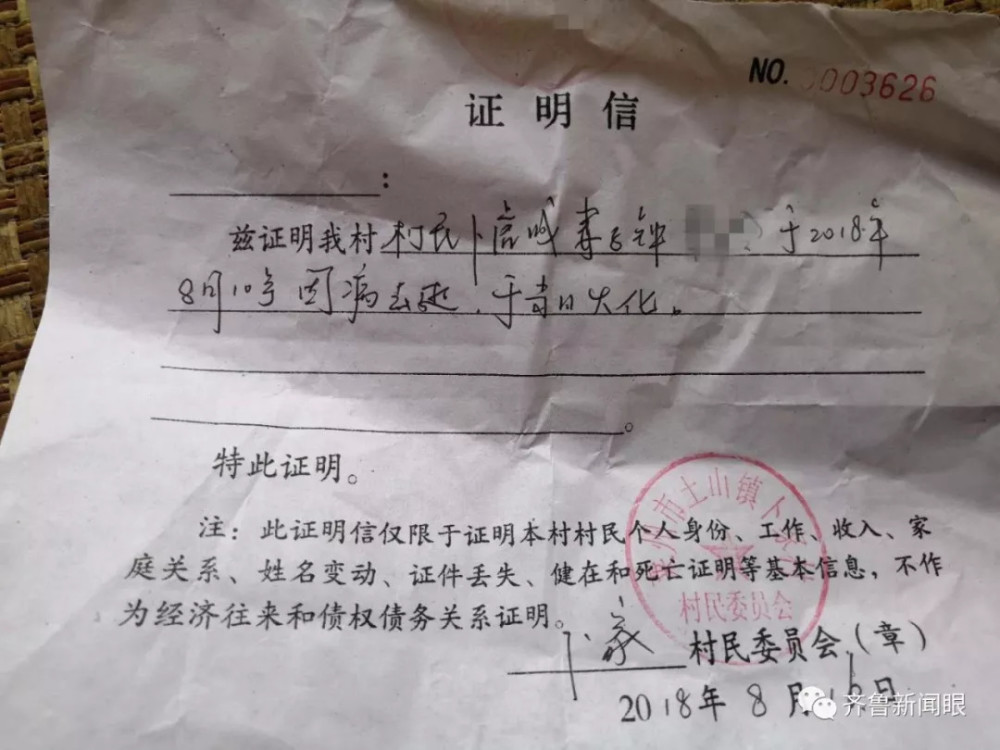 NO. 003626
证明信
：
兹证明我村村民卜 于2018年
8月10号因病去逝，于当日火化。
。
特此证明。
注：此证明信仅限于证明本村村民个人身份、工作、收入、家
庭关系、姓名变动、证件丢失、健在和死亡证明等基本信息，不作
为经济往来和债权债务关系证明。
州市土山镇卜
村民委员会
卜家村民委员会（章）
2018年8月16日
齐鲁新闻眼